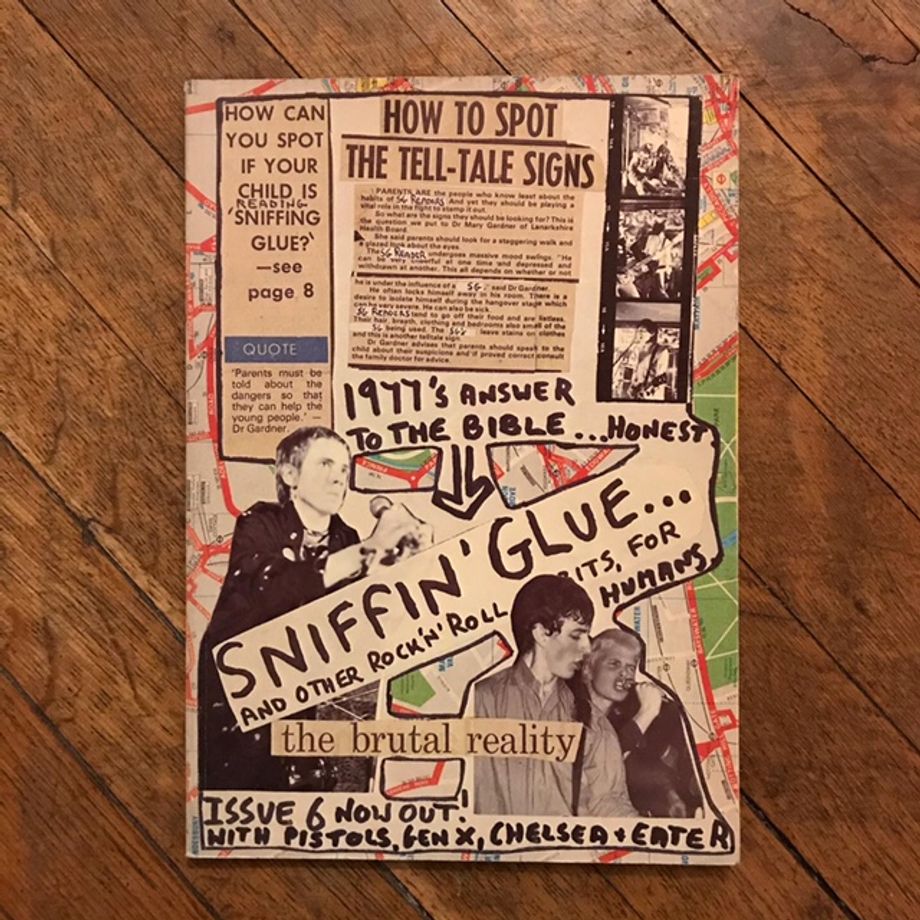 HOW CAN
YOU SPOT
IF YOUR
CHILD IS
READING
'SNIFFING
GLUE?'
—see
page 8
QUOTE
'Parents must be
told about the
dangers so that
they can help the
young people.' —
Dr Gardner.
HOW TO SPOT
THE TELL-TALE SIGNS
PARENTS ARE the people who know least about the
habits of SG READERS And yet they should be playing a
vital role in the fight to stamp it out.
So what are the signs they should be looking for? This is
the question we put to Dr Mary Gardner of Lanarkshire
Health Board.
She said parents should look for a staggering walk and
a glazed look about the eyes.
The SG READER undergoes massive mood swings. "He
can be very cheerful at one time and depressed and
withdrawn at another. This all depends on whether or not
he is under the influence of a SG," said Dr Gardner.
He often locks himself away in his room. There is a
desire to isolate himself during the hangover stage which
can be very severe. He can also be sick.
SG READERS tend to go off their food and are listless.
Their hair, breath, clothing and bedrooms also smell of the
SG being used. The SG's leave stains on clothes
and this is another telltale sign.
Dr Gardner advises that parents should speak to the
child about their suspicions and if proved correct consult
the family doctor for advice.
1977'S ANSWER
TO THE BIBLE...HONEST
SNIFFIN' GLUE...
AND OTHER ROCK'N'ROLL BITS, FOR
HUMANS
the brutal reality
ISSUE 6 NOW OUT!
WITH PISTOLS, GEN X, CHELSEA + EATER